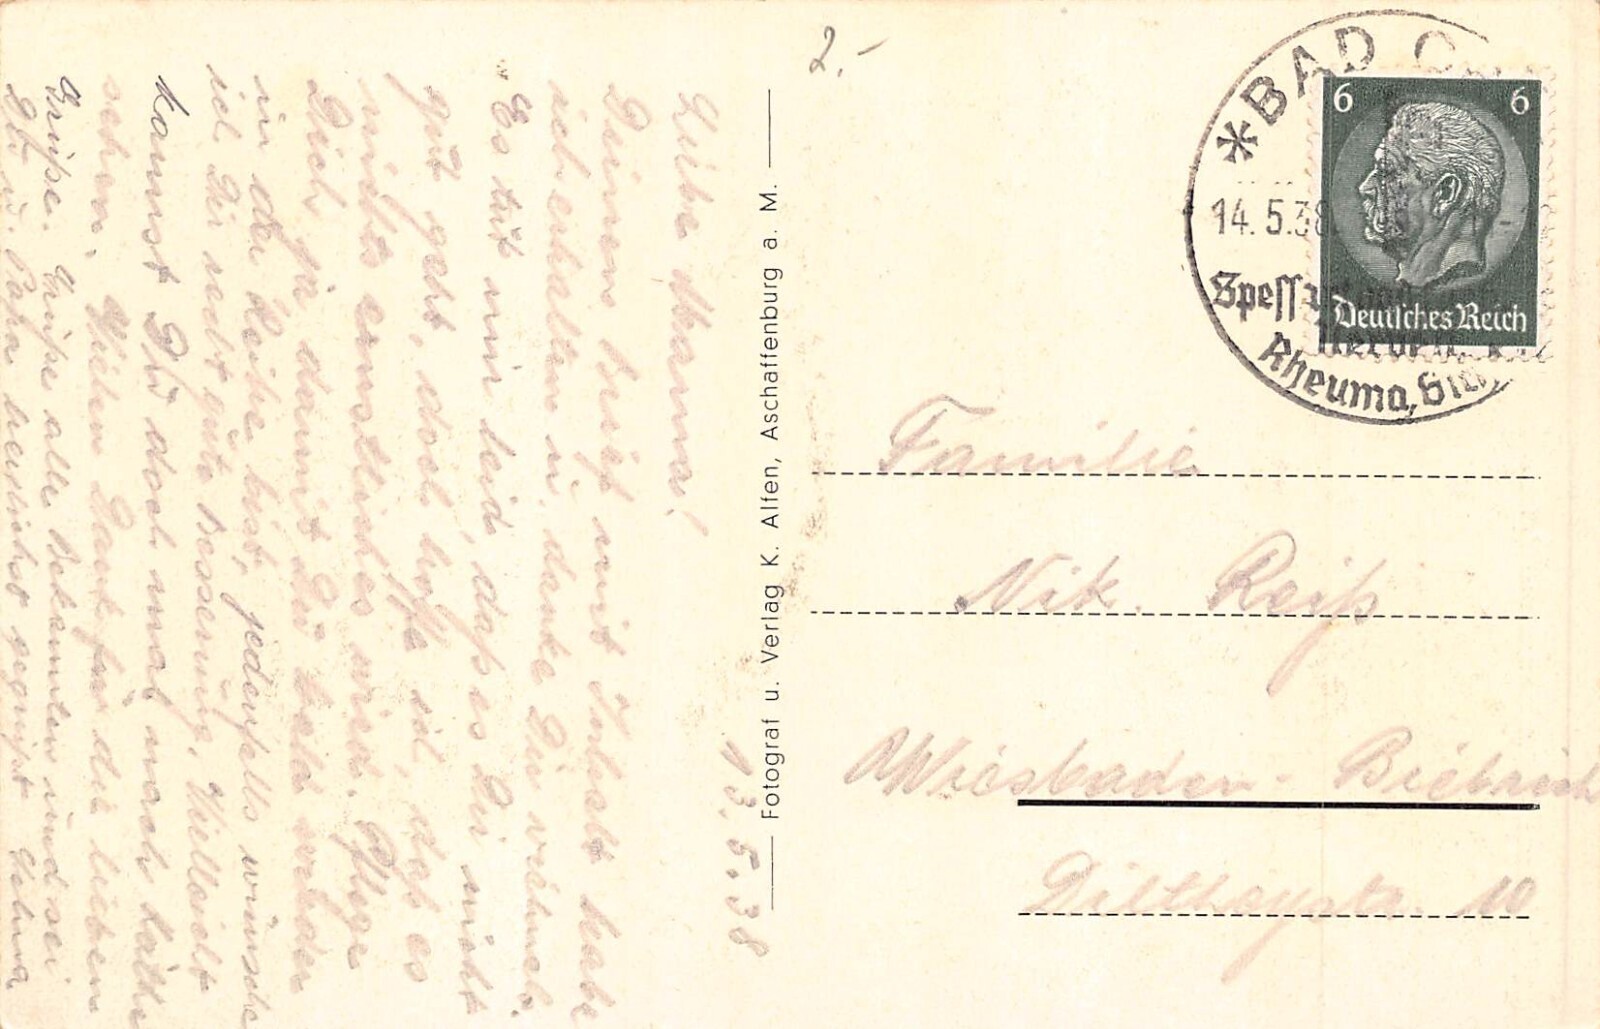 2.-
* BAD O
14.5.38
Spess
Nerven,
Rheuma, Gicht
6 6
Deutsches Reich
13.5.38
Liebe Mama!
Deinen Brief mit Inhalt habe
ich erhalten u. danke Dir vielmals.
Es tut mir leid, daß es Dir nicht
gut geht, doch hoffe ich, daß es
nichts ernstliches wird. Pflege
Dich ja damit Du bald wieder
in der Reihe bist, jedenfalls wünsche
ich Dir recht gute Besserung. Vielleicht
kannst Du doch mal nach
sehen. Vielen Dank für die lieben
Grüße. Grüße alle Bekannten und sei
Du u. Papa herzlichst gegrüßt
Fotograf u. Verlag K. Alfen, Aschaffenburg a. M.
Familie
Nik. Reiß
Wiesbaden-Biebrich
Diltheystr. 10